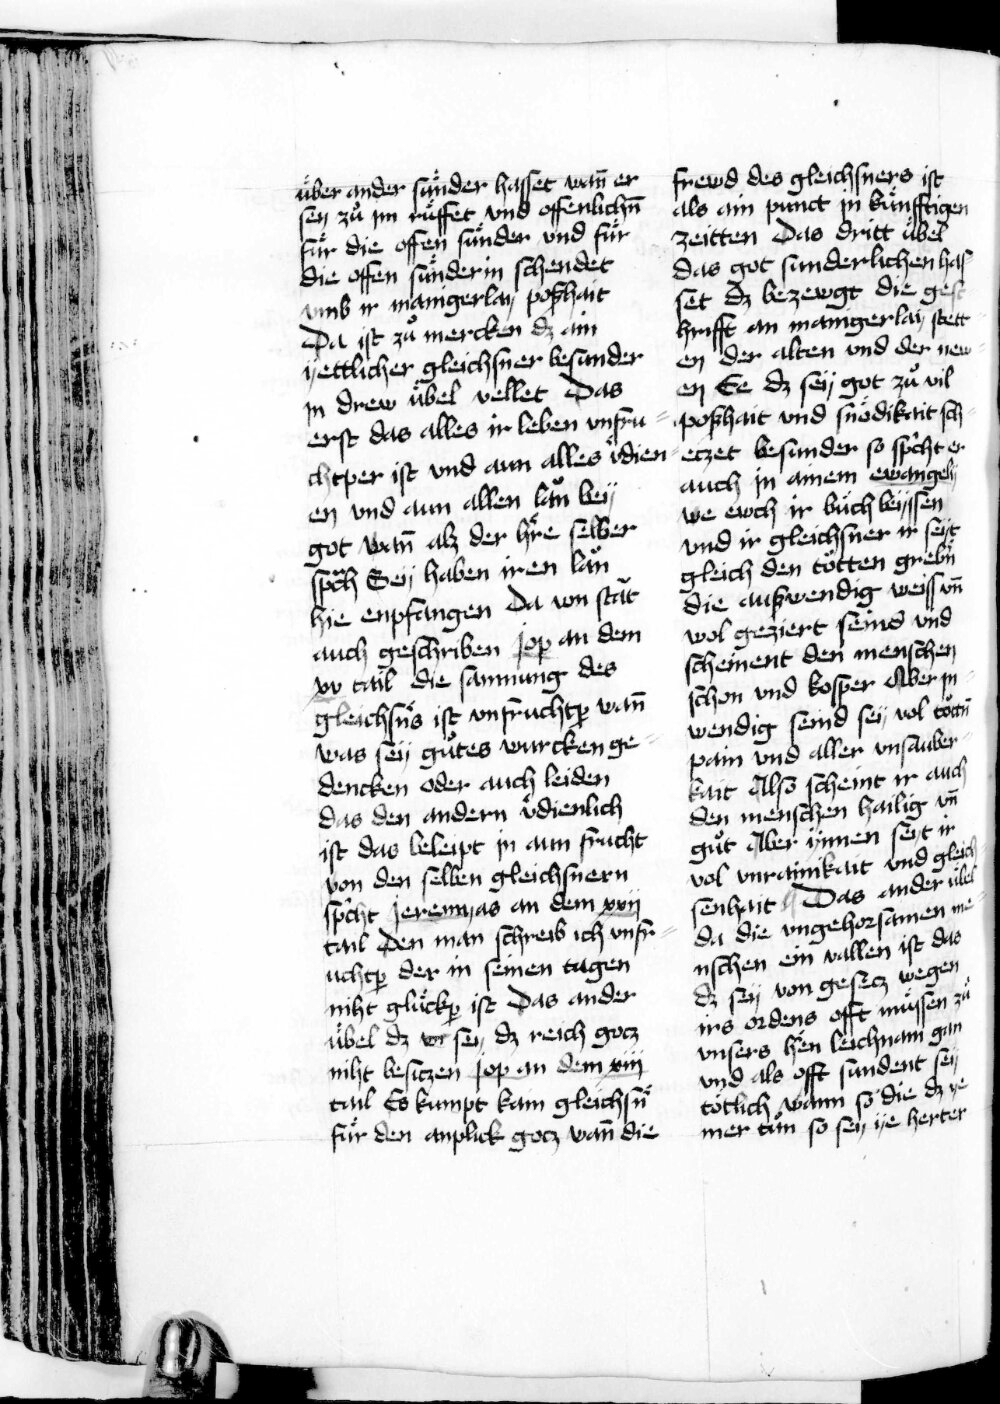 über ander sünder hasset wan̄ er
sey zuͦ im rüffet vnd offenlichn̄
für die offen sünder vnd für
die offen sünderin schendet
vmb ir manigerlaÿ poßhait
Da ist zuͦ mercken dz ain
ÿettlicher gleichsner besunder
in drew übel vellet Das
erst das alles ir leben vnfru=
chtper ist vnd aun alles v̓dien=
en vnd aun allen lan beÿ
got wan̄ alz der hr̄e selber
spͦch Seÿ haben iren lan
hie enpfangen Da von stāt
auch geschriben Jop an dem
xv tail die samnung des
gleichsn̓s ist vnfruchtꝑ wan̄
was seÿ guͦtes wurcken ge=
dencken oder auch leiden
das den andern v̓dienlich
ist das beleipt in aun frucht
von den selben gleichsnern
sp̓cht Jeremÿas an dem xxij
tail Den man schreib ich vnfr=
uchtꝑ der in seinen tagen
niht glückꝑ ist Das ander
übel dz seÿ dz reich gocz
niht besiczen Jop an dem xiij
tail Es kumpt kain gleichsn̓
für den anplick gocz wan̄ die
frewd des gleichsners ist
als ain punct in künfftigen
zeitten Das dritt übel
das got sunderlichen has
set dz bezewgt die gesc
hrifft an manigerlaÿ stett
en der alten vnd der new=
en Ee dz seÿ got zuͦ vil
poßhait vnd snödikait sch=
eczet besunder so sp̓cht er
auch in ainem ewangelÿ
we ewch ir buͦch beÿssen
vnd ir gleichsner ir seÿt
gleich den totten grebn̄
die außwendig weiss vn̄
wol geziert seind vnd
scheinent den menschen
schon vnd kosper Aber in=
wendig seind seÿ vol tottn̄
pain vnd aller vnsauber=
kait Also scheint ir auch
den menschen hailig vn̄
guͦt Aber ÿnnen seÿt ir
vol vnrainikait vnd gleich=
senhait Das ander übel
da die vngehorsamen me=
nschen ein vallen ist das
dz seÿ von gesecz wegen
irs ordens offt müssen zuͦ
vnsers hr̄en leichnam gan
vnd als offt sundent seÿ
tötlich wann so die dz ÿe
mer tün so seÿ ÿe herter